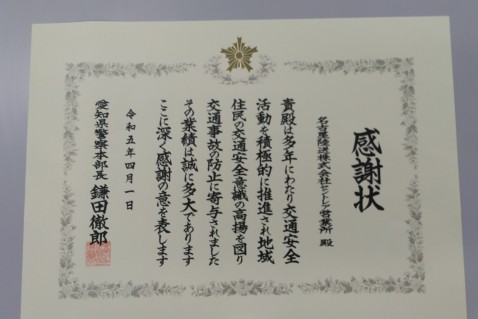 感謝状
名古屋陸送株式会社セントレア営業所 殿
貴殿は多年にわたり交通安全
活動を積極的に推進され地域
住民の交通安全意識の高揚を図り
交通事故の防止に寄与されました
その業績は誠に多大であります
ここに深く感謝の意を表します
令和五年四月一日
愛知県警察本部長 鎌田徹郎